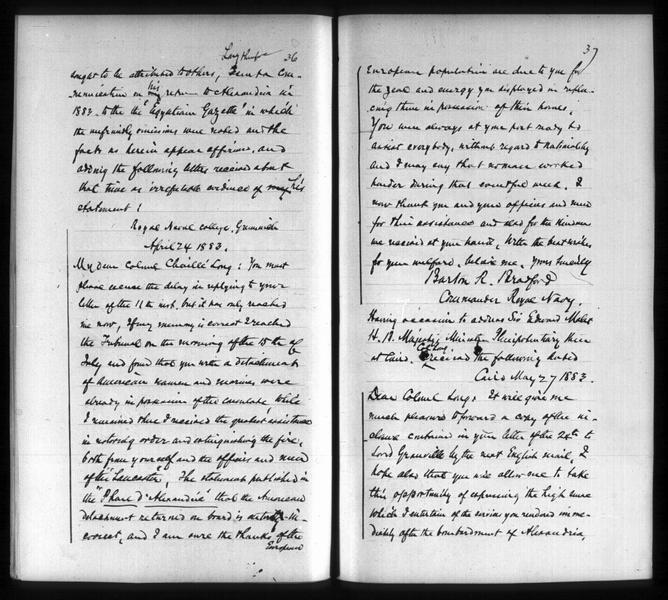 36
sought to be attributed to others, I sent a Com-
munication on his return to Alexandria in
1883 to the the "Egyptian Gazette" in which
the unfriendly omissions were noted and the
facts as herein appear affirmed, and
adding the following letter received about
that time as irrefutable evidence of my his
statement:
Royal Naval College, Greenwich
April 24 1883.
My dear Colonel Chaillé Long: You must
please excuse the delay in replying to your
letter of the 11th inst. but it has only reached
me now, If my memory is correct I reached
the Tribunal on the morning of the 15th of
July and found that you with a detachment
of American seamen and marines were
already in possession of the consulate while
I remained there I received the greatest assistance
in restoring order and extinguishing the fire,
both from yourself and the officers and men
of the "Lancaster". The statement published in
the "Phare d'Alexandrie" that the American
detachment returned on board is entirely in-
correct, and I am sure the thanks of the
European
37
European population are due to you for
the zeal and energy you displayed in repla-
cing them in possession of their homes.
You were always at your post ready to
assist everybody, without regard to nationality
and I may say that no man worked
harder during that eventful week. I
now thank you and your officers and men
for their assistance and also for the kindness
we received at your hands. With the best wishes
for your welfare, believe me. Yours sincerely
Barton R. Bradford
Commander Royal Navy.
Having occasion to address Sir Edward Malet
H. B. Majesty's Minister Plenipotentiary then
at Cairo. Col Long received the following dated
Cairo May 27 1883.
Dear Colonel Long: It will give me
much pleasure to forward a copy of the in-
closure contained in your letter of the 24th to
Lord Granville by the next English mail, I
hope also that you will allow me to take
this opportunity of expressing the high sense
which I entertain of the services you rendered imme-
diately after the bombardment of Alexandria,